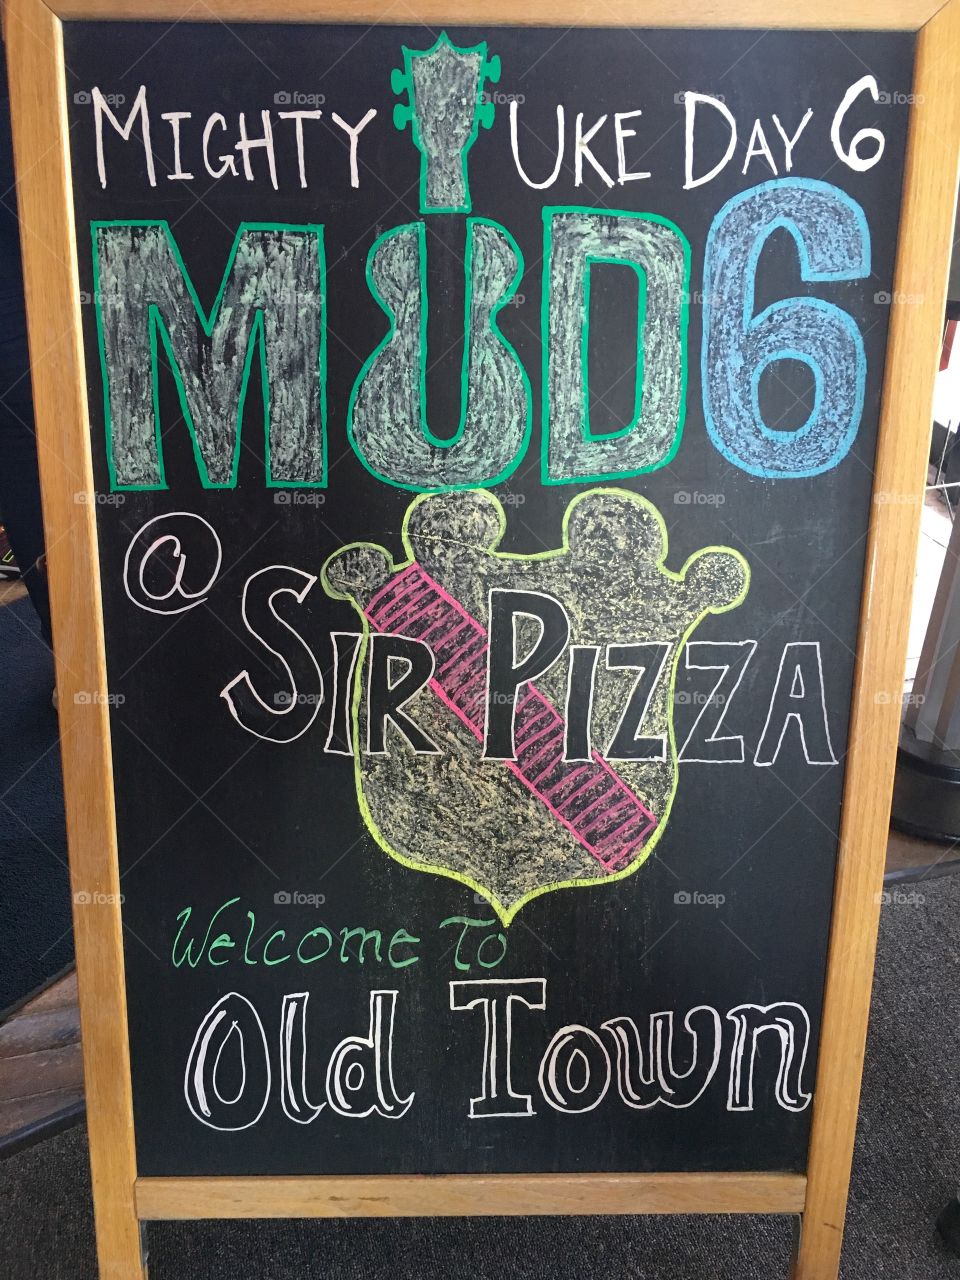 MIGHTY UKE DAY 6
MUD6
@ SIR PIZZA
Welcome To
Old Town